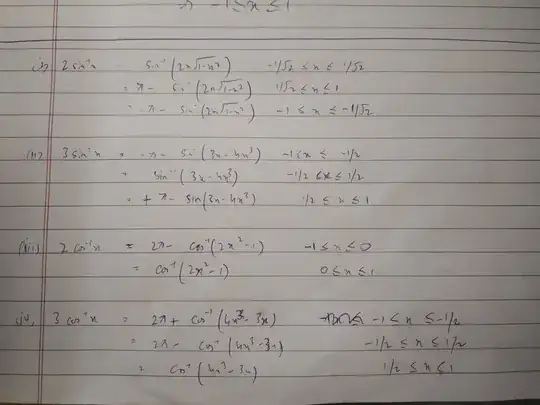 -1 ≤ x ≤ 1
(i) 2 sin⁻¹x sin⁻¹(2x√1-x²) -1/√2 ≤ x ≤ 1/√2
= π - sin⁻¹(2x√1-x²) 1/√2 ≤ x ≤ 1
= -π - sin⁻¹(2x√1-x²) -1 ≤ x ≤ -1/√2
(ii) 3 sin⁻¹x = -π - sin⁻¹(3x - 4x³) -1 ≤ x ≤ -1/2
= sin⁻¹(3x - 4x³) -1/2 ≤ x ≤ 1/2
= + π - sin(3x - 4x³) 1/2 ≤ x ≤ 1
(iii) 2 cos⁻¹x = 2π - cos⁻¹(2x² - 1) -1 ≤ x ≤ 0
= cos⁻¹(2x² - 1) 0 ≤ x ≤ 1
iv, 3 cos⁻¹x = 2π + cos⁻¹(4x³ - 3x) -1 ≤ x ≤ -1/2
= 2π - cos⁻¹(4x³ - 3x) -1/2 ≤ x ≤ 1/2
= cos⁻¹(4x³ - 3x) 1/2 ≤ x ≤ 1